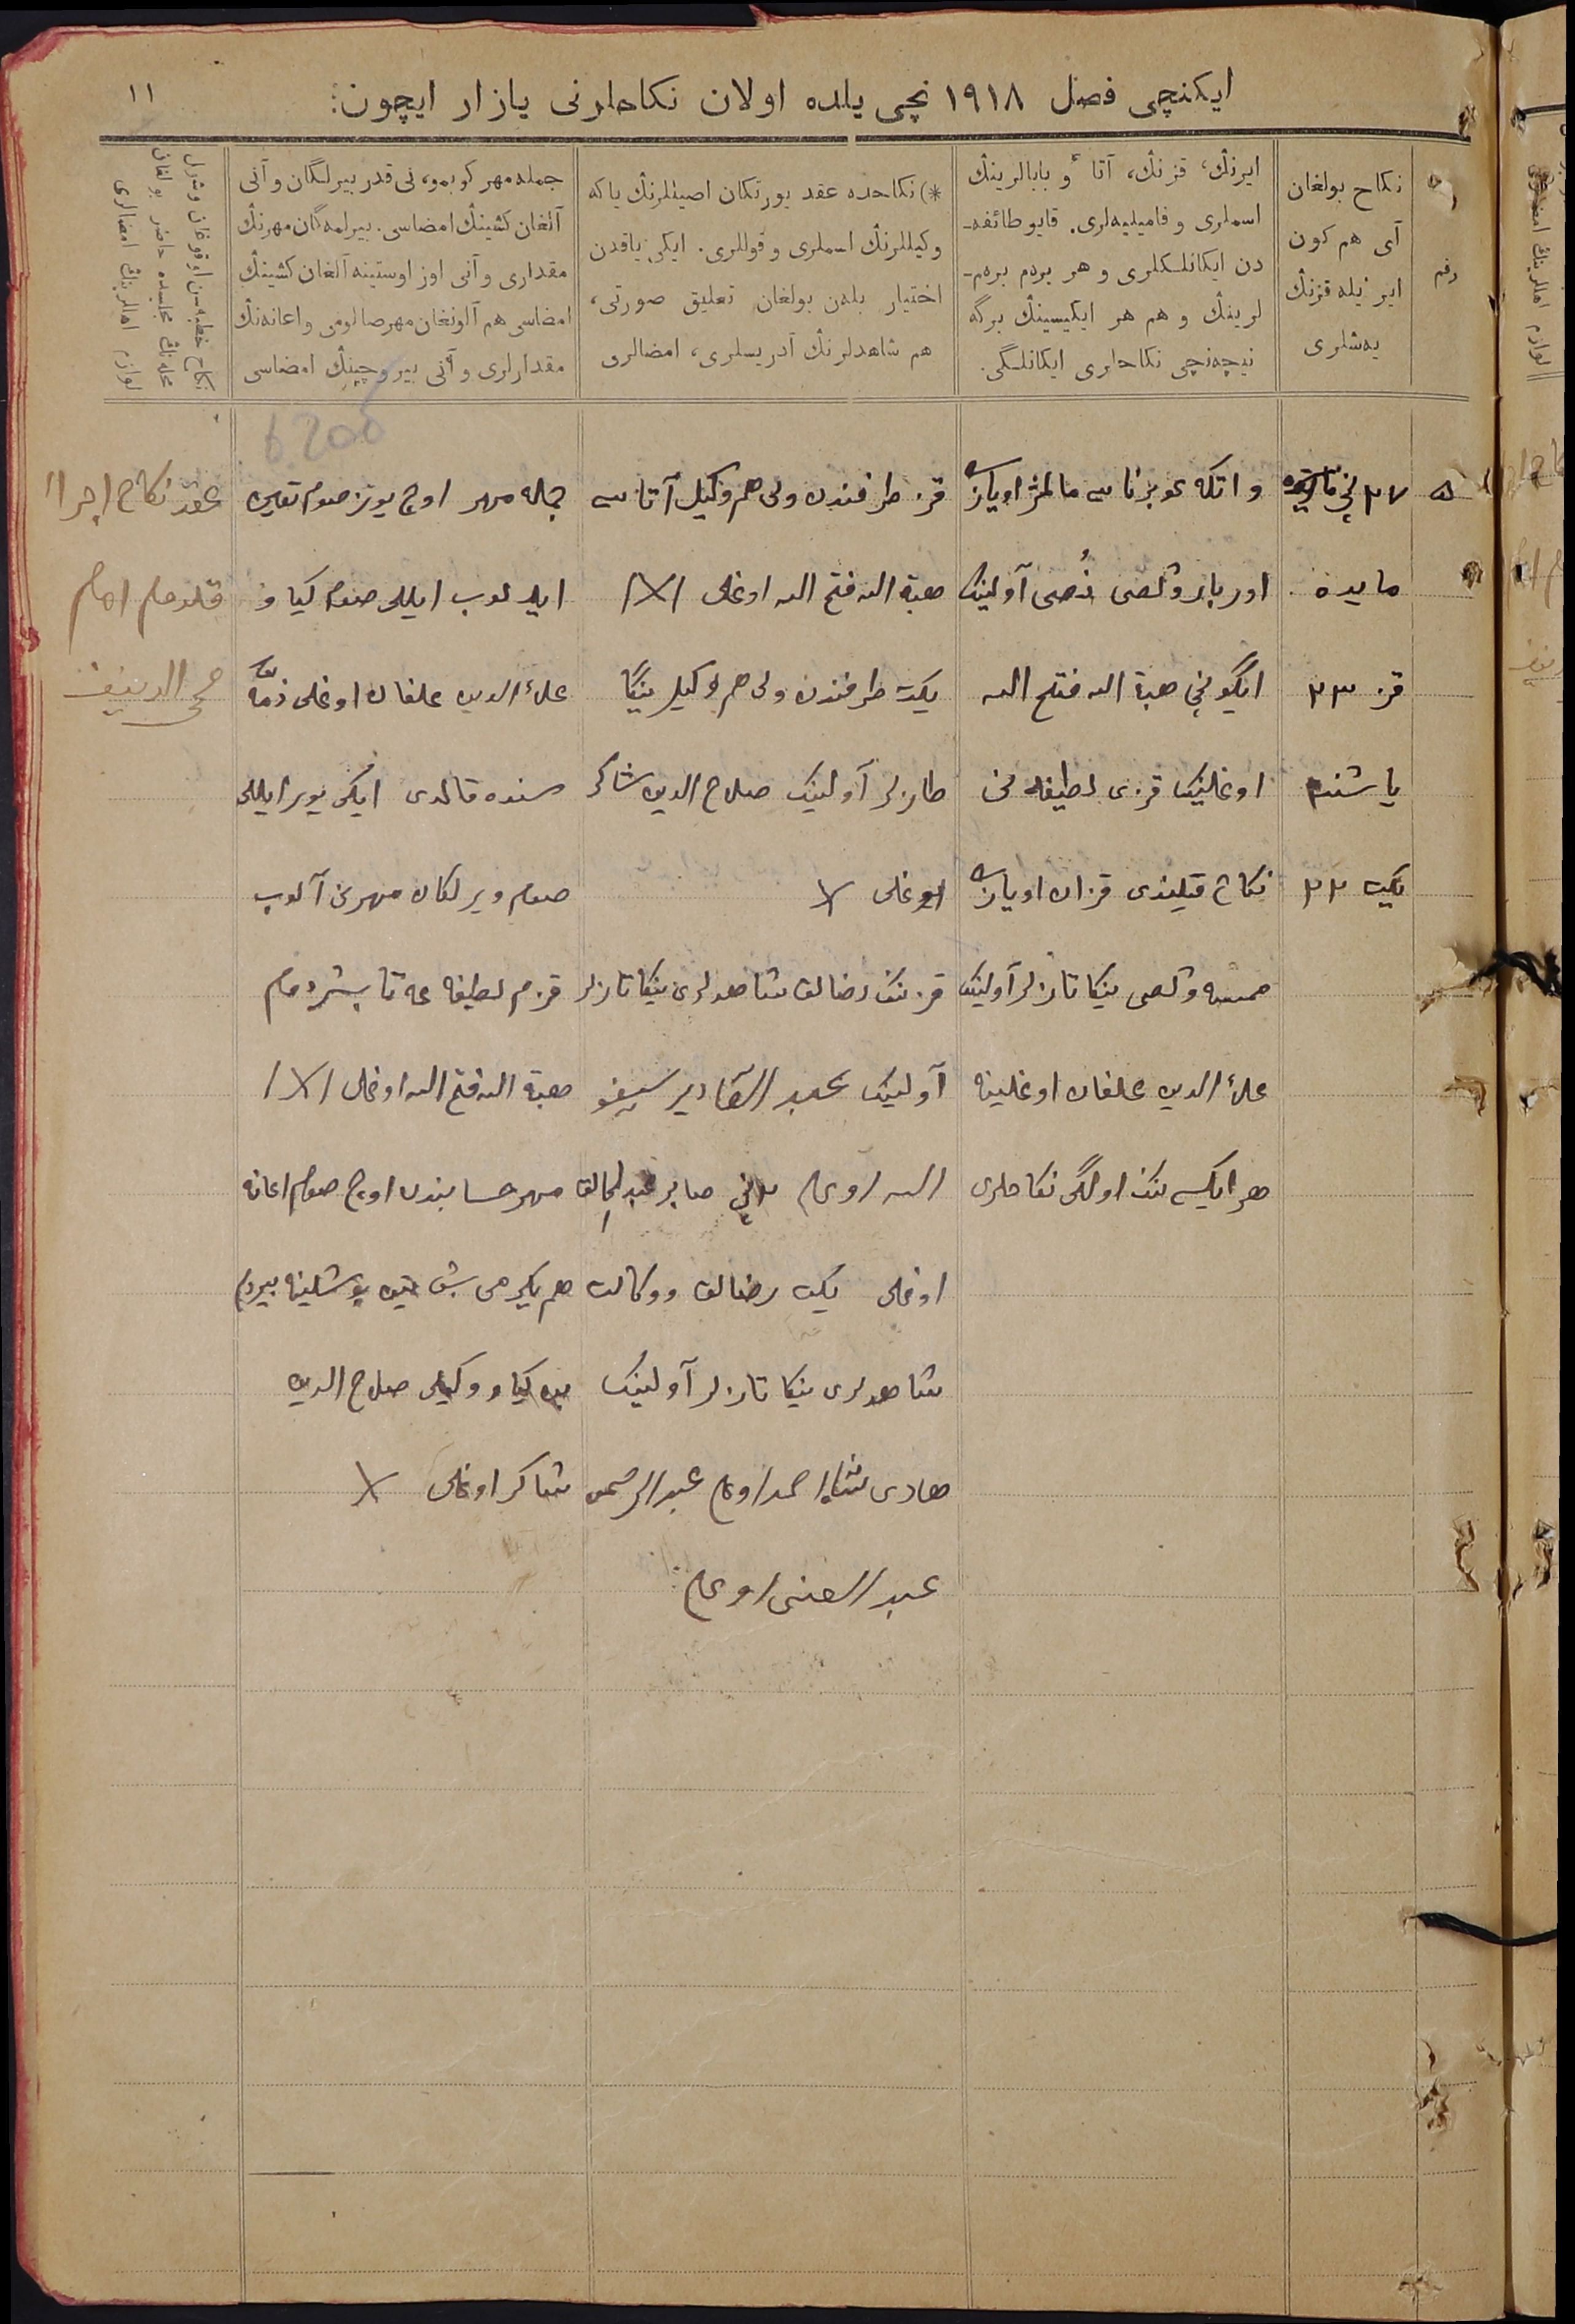 ایکنچی فصل ۱۹۱۸ نچی یلده اولان نکاحلرنی یازار ایچون:
۱۱
رقم
نکاح بولغان
آی هم کون
ایر ئیله قزنڭ
یەشلری
ایرنڭ، قزنڭ، آتا و بابالرینڭ
اسملری و فامیلیەلری. قایو طائفه‌ـ
دن ایکانلکلری و هر بردم بردم‌ـ
لرینڭ و هم هر ایکیسینڭ برگه
نیچەنچی نکاحلری ایکانلگی.
*) نکاحده عقد یورتکان اصیللرنڭ یا که
وکیللرنڭ اسملری و قوللری. ایکی یاقدن
اختیار بلەن بولغان تعلیق صورتی،
هم شاهدلرنڭ آدریسلری، امضالری
جمله مهر کوبمو، نی قدر بیرلگان و آنی
آلغان کشینڭ امضاسی. بیرلمەگان مهرنڭ
مقداری و آنی اوز اوستینه آلغان کشینڭ
امضاسی هم آلونغان مهر صالومی و اعانەنڭ
مقدارلری و آنی بیروچینڭ امضاسی
نکاح خطبەسن اوقوغان و شول
مجلسده حاضر بولغان
لوازم اهالرینڭ امضالری
6200
۵
۲۷ نچی
مایده
قز ۲۳
یاشنده
یکیت ۲۲
واتکه غوبرناسی مالمژ اویازی
اولینڭ
هبة الله فتح الله
اوغلینڭ قزی لطیفه نی
نکاح قیلیندی قزان اویازی
ینکا تازلر آولینڭ
علاء الدین علفان اوغلینه
هر ایکیسینڭ اولگی نکاحلری
قز طرفندن ولی هم وکیل آتاسی
هبة الله فتح الله اوغلی
یکیت طرفندن ولی هم وکیل ینکا
طازلر آولینڭ صلاح الدین شاکر
اوغلی
قزنڭ رضالق شاهدلری ینکا تازلر
آولینڭ عبد القادیر سیف
الله اوغلی ۲نچی صابر عبد الخالق
اوغلی یکیت رضالق ووکالت
شاهدلری ینکا تازلر آولینڭ
هادی شاه احمد اوغلی عبد الرحمن
عبد الغنی اوغلی
جمله مهر اوچ یوز صوم تعیین
ایدلوب ایللی صوم کیاو
علاء الدین علفان اوغلی ذمه
سنده قالدی ایکی یوز ایللی
صوم ویرلکان مهرنی آلوب
قزم لطیفه غه تابشردم
هبة الله فتح الله اوغلی
مهر حسابندن اوچ صوم اعانه
هم یکرمی بش تین پوشلینه بیردم
من کیاو وکیلی صلاح الدین
شاکر اوغلی
عقد نکاح اجراء
قلدم امام
محی الدینف